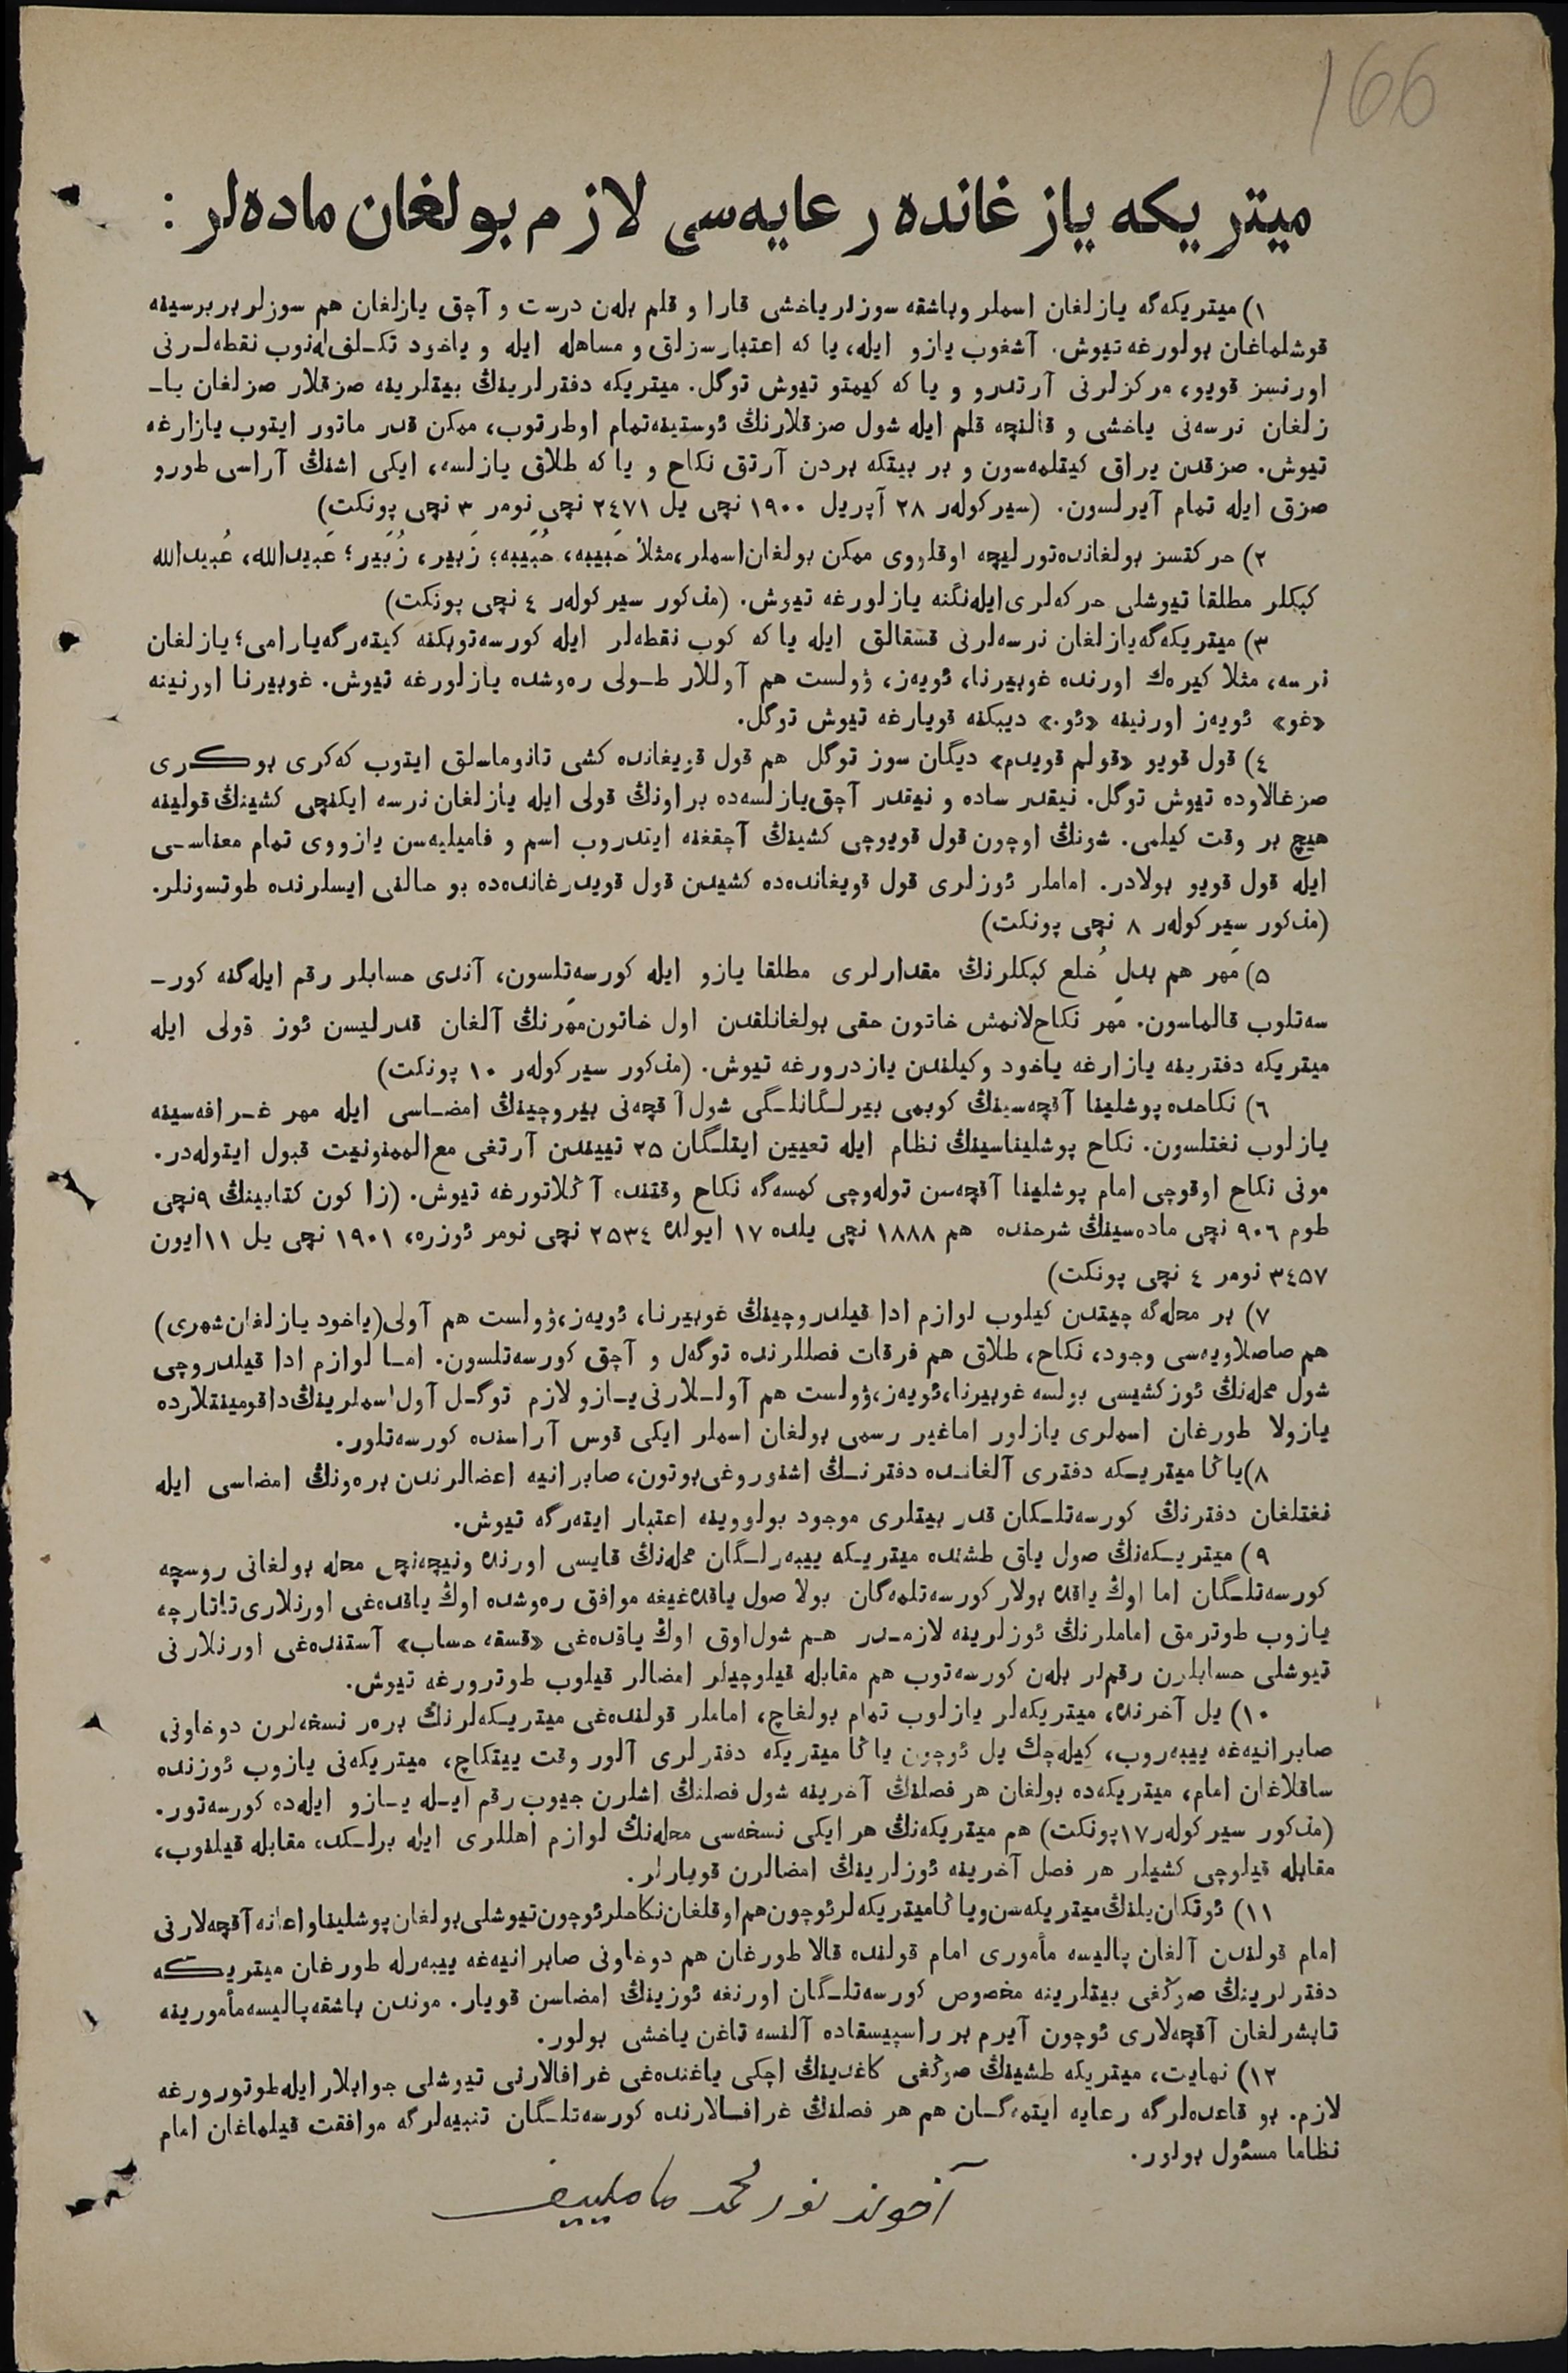 166
ميتريكه يازغانده رعايه‌سى لازم بولغان ماده‌لر :
١) ميتريكه‌گه يازلغان اسملر وباشقه سوزلر ياخشى قارا و قلم بله‌ن درست و آچق يازلغان هم سوزلر بر برسينه
قوشلماغان بولورغه تيوش. آشغوب يازو ايله، يا كه اعتبارسزلق و مساهله ايله و ياخود تكـلف‌له‌نوب نقطه‌لـرنى
اورنسز قويو، مركزلرنى آرتدرو و يا كه كيمتو تيوش توگل. ميتريكه دفترلرينڭ بيتلرينه صزقلار صزلغان يا‍ـ
زلغان نرسه‌نى ياخشى و قالنچه قلم ايله شول صزقلارنڭ ئوستينه‌تمام اوطرتوب، ممكن قدر ماتور ايتوب يازارغه
تيوش. صزقدن يراق كيتلمه‌سون و بر بيتكه بردن آرتق نكاح و يا كه طلاق يازلسه، ايكى اشنڭ آراسى طورو
صزق ايله تمام آيرلسون. (سيركوله‌ر ٢٨ آپريل ١٩٠٠ نچى يل ٢٤٧١ نچى نومر ٣ نچى پونكت)
٢) حركتسز بولغانده‌تورليچه اوقلووى ممكن بولغان‌اسملر،مثلا حَبيبه، حُبَيبه؛ زَبير، زُبَير؛ عَبيدالله، عُبيدالله
كبكلر مطلقا تيوشلى حركه‌لرى‌ايله‌نگنه يازلورغه تيوش. (مذكور سيركوله‌ر ٤ نچى پونكت)
٣) ميتريكه‌گه‌يازلغان نرسه‌لرنى قسقالق ايله يا كه كوب نقطه‌لر ايله كورسه‌توبكنه كيته‌رگه‌يارامى؛ يازلغان
نرسه، مثلا كيره‌ك اورنده غوبيرنا، ئويه‌ز، وولست هم آوللار طـولى ره‌وشده يازلورغه تيوش. غوبيرنا اورنينه
«غو» ئويه‌ز اورنينه «ئو.» ديبكنه قويارغه تيوش توگل.
٤) قول قويو «قولم قويدم» ديگان سوز توگل هم قول قويغانده كشى تانوماسلق ايتوب كه‌كرى بوكـرى
صزغالاوده تيوش توگل. نيقدر ساده و نيقدر آچق‌يازلسه‌ده براونڭ قولى ايله يازلغان نرسه ايكنچى كشينڭ قولينه
هيچ بر وقت كيلمى. شونڭ اوچون قول قويوچى كشينڭ آچقغنه ايتدروب اسم و فاميليه‌سن يازووى تمام معناسـى
ايله قول قويو بولادر. اماملر ئوزلرى قول قويغانده‌ده كشيدن قول قويدرغانده‌ده بو حالنى ايسلرنده طوتسونلر.
(مذكور سيركوله‌ر ٨ نچى پونكت)
٥) مَهر هم بدلِ خُلع كبكلرنڭ مقدارلرى مطلقا يازو ايله كورسه‌تلسون، آندى حسابلر رقم ايله‌گنه كور‍ـ
سه‌تلوب قالماسون. مَهر نكاح‌لانمش خاتون حقى بولغانلقدن اول خاتون‌مَهرنڭ آلغان قدرليسن ئوز قولى ايله
ميتريكه دفترينه يازارغه ياخود وكيلندن يازدرورغه تيوش. (مذكور سيركوله‌ر ١٠ پونكت)
٦) نكاحده پوشلينا آقچه‌سينڭ كوبمى بيرلـگانلـگى شول آقچه‌نى بيروچينڭ امضـاسى ايله مهر غـرافه‌سينه
يازلوب نغتلسون. نكاح پوشليناسينڭ نظام ايله تعيين ايتلـگان ٢٥ تييندن آرتغى مع‌الممنونيت قبول ايتوله‌در.
مونى نكاح اوقوچى امام پوشلينا آقچه‌سن توله‌وچى كمسه‌گه نكاح وقتنده آڭلاتورغه تيوش. (زاكون كتابينڭ ٩نچى
طوم ٩٠٦ نچى ماده‌سينڭ شرحنده هم ١٨٨٨ نچى يلده ١٧ ايولده ٢٥٣٤ نچى نومر ئوزره، ١٩٠١ نچى يل ١١ايون
٣٤٥٧ نومر ٤ نچى پونكت)
٧) بر محله‌گه چيتدن كيلوب لوازم ادا قيلدروچينڭ غوبيرنا، ئويه‌ز،وولست هم آولى(ياخود يازلغان‌شهرى)
هم صاصلاويه‌سى وجود، نكاح، طلاق هم فرقات فصللرنده توگه‌ل و آچق كورسه‌تلسون. امـا لوازم ادا قيلدروچى
شول محله‌نڭ ئوزكشيسى بولسه غوبيرنا،ئويه‌ز،وولست هم آولـلارنى‌يـازو لازم توگـل آول‌اسملرينڭ‌داقومينتلارده
يازولا طورغان اسملرى يازلور اماغير رسمى بولغان اسملر ايكى قوس آراسنده كورسه‌تلور.
٨)ياڭا ميتريـكه دفترى آلغانـده دفترنـڭ اشنوروغى‌بوتون، صابرانيه اعضالرندن بره‌ونڭ امضاسى ايله
نغتلغان دفترنڭ كورسه‌تلـكان قدر بيتلرى موجود بولووينه اعتبار ايته‌رگه تيوش.
٩) ميتريـكه‌نڭ صول ياق طشنده ميتريـكه ييبه‌رلـگان محله‌نڭ قايسى اورنده ونيچه‌نچى محله بولغانى روسچه
كورسه‌تلـگان اما اوڭ ياقده بولار كورسه‌تلمه‌گان. بولا صول ياقده‌غيغه موافق ره‌وشده اوڭ ياقده‌غى اورنلارى‌تاتارچه
يازوب طوترمق اماملرنڭ ئوزلرينه لازمـدر هـم شول‌اوق اوڭ ياقده‌غى «قسقه حساب» آستنده‌غى اورنلارنى
تيوشلى حسابلرن رقملر بله‌ن كورسه‌توب هم مقابله قيلوچيلر امضالر قيلوب طوترورغه تيوش.
١٠) يل آخرنده، ميتريكه‌لر يازلوب تمام بولغاچ، اماملر قولنده‌غى ميتريـكه‌لرنڭ بره‌ر نسخه‌لرن دوخاونى
صابرانيه‌غه ييبه‌روب، كيله‌چك يل ئوچون ياڭا ميتريكه دفترلرى آلور وقت ييتكاچ، ميتريكه‌نى يازوب ئوزنده
ساقلاغان امام، ميتريكه‌ده بولغان هر فصلنڭ آخرينه شول فصلنڭ اشلرن جيوب رقم ايـله يـازو ايله‌ده كورسه‌تور.
(مذكور سيركوله‌ر١٧پونكت) هم ميتريكه‌نڭ هر ايكى نسخه‌سى محله‌نڭ لوازم اهللرى ايله برلـكده مقابله قيلنوب،
مقابله قيلوچى كشيلر هر فصل آخرينه ئوزلرينڭ امضالرن قويارلر.
١١) ئوتكان‌يلنڭ‌ميتريكه‌سن‌وياڭاميتريكه‌لرئوچون‌هم‌اوقلغان‌نكاحلرئوچون‌تيوشلى‌بولغان‌پوشليناواعانه‌آقچه‌لارنى
امام قولندن آلغان پاليسه مأمورى امام قولنده قالا طورغان هم دوخاونى صابرانيه‌غه ييبه‌رله طورغان ميتريـكه
دفترلرينڭ صوڭغى بيتلرينه مخصوص كورسه‌تلـگان اورنغه ئوزينڭ امضاسن قويار. موندن باشقه‌پاليسه‌مأمورينه
تابشرلغان آقچه‌لارى ئوچون آيرم بر راسپيسقاده آلنسه تاغن ياخشى بولور.
١٢) نهايت، ميتريكه طشينڭ صوڭغى كاغدينڭ اچكى ياغنده‌غى غرافالارنى تيوشلى جوابلار ايله‌طوتورورغه
لازم. بو قاعده‌لرگه رعايه ايتمه‌گـان هم هر فصلنڭ غرافـالارنده كورسه‌تلـگان تنبيه‌لرگه موافقت قيلماغان امام
نظاما مسئول بولور.
آخوند نورمحمد ماملييف